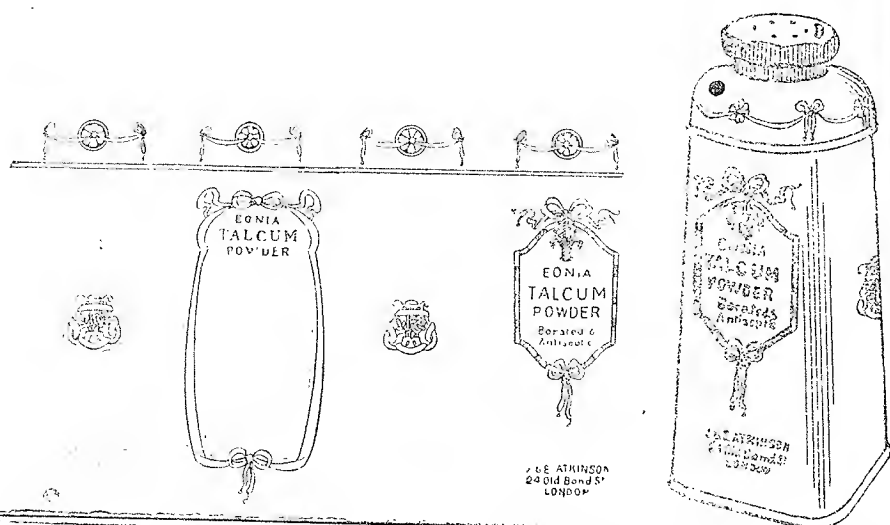 EONIA
TALCUM
POWDER
EONIA
TALCUM
POWDER
Borated &
Antiseptic
J & E ATKINSON
24 Old Bond St
LONDON
EONIA
TALCUM
POWDER
Borated &
Antiseptic
J & E ATKINSON
24 Old Bond St
LONDON